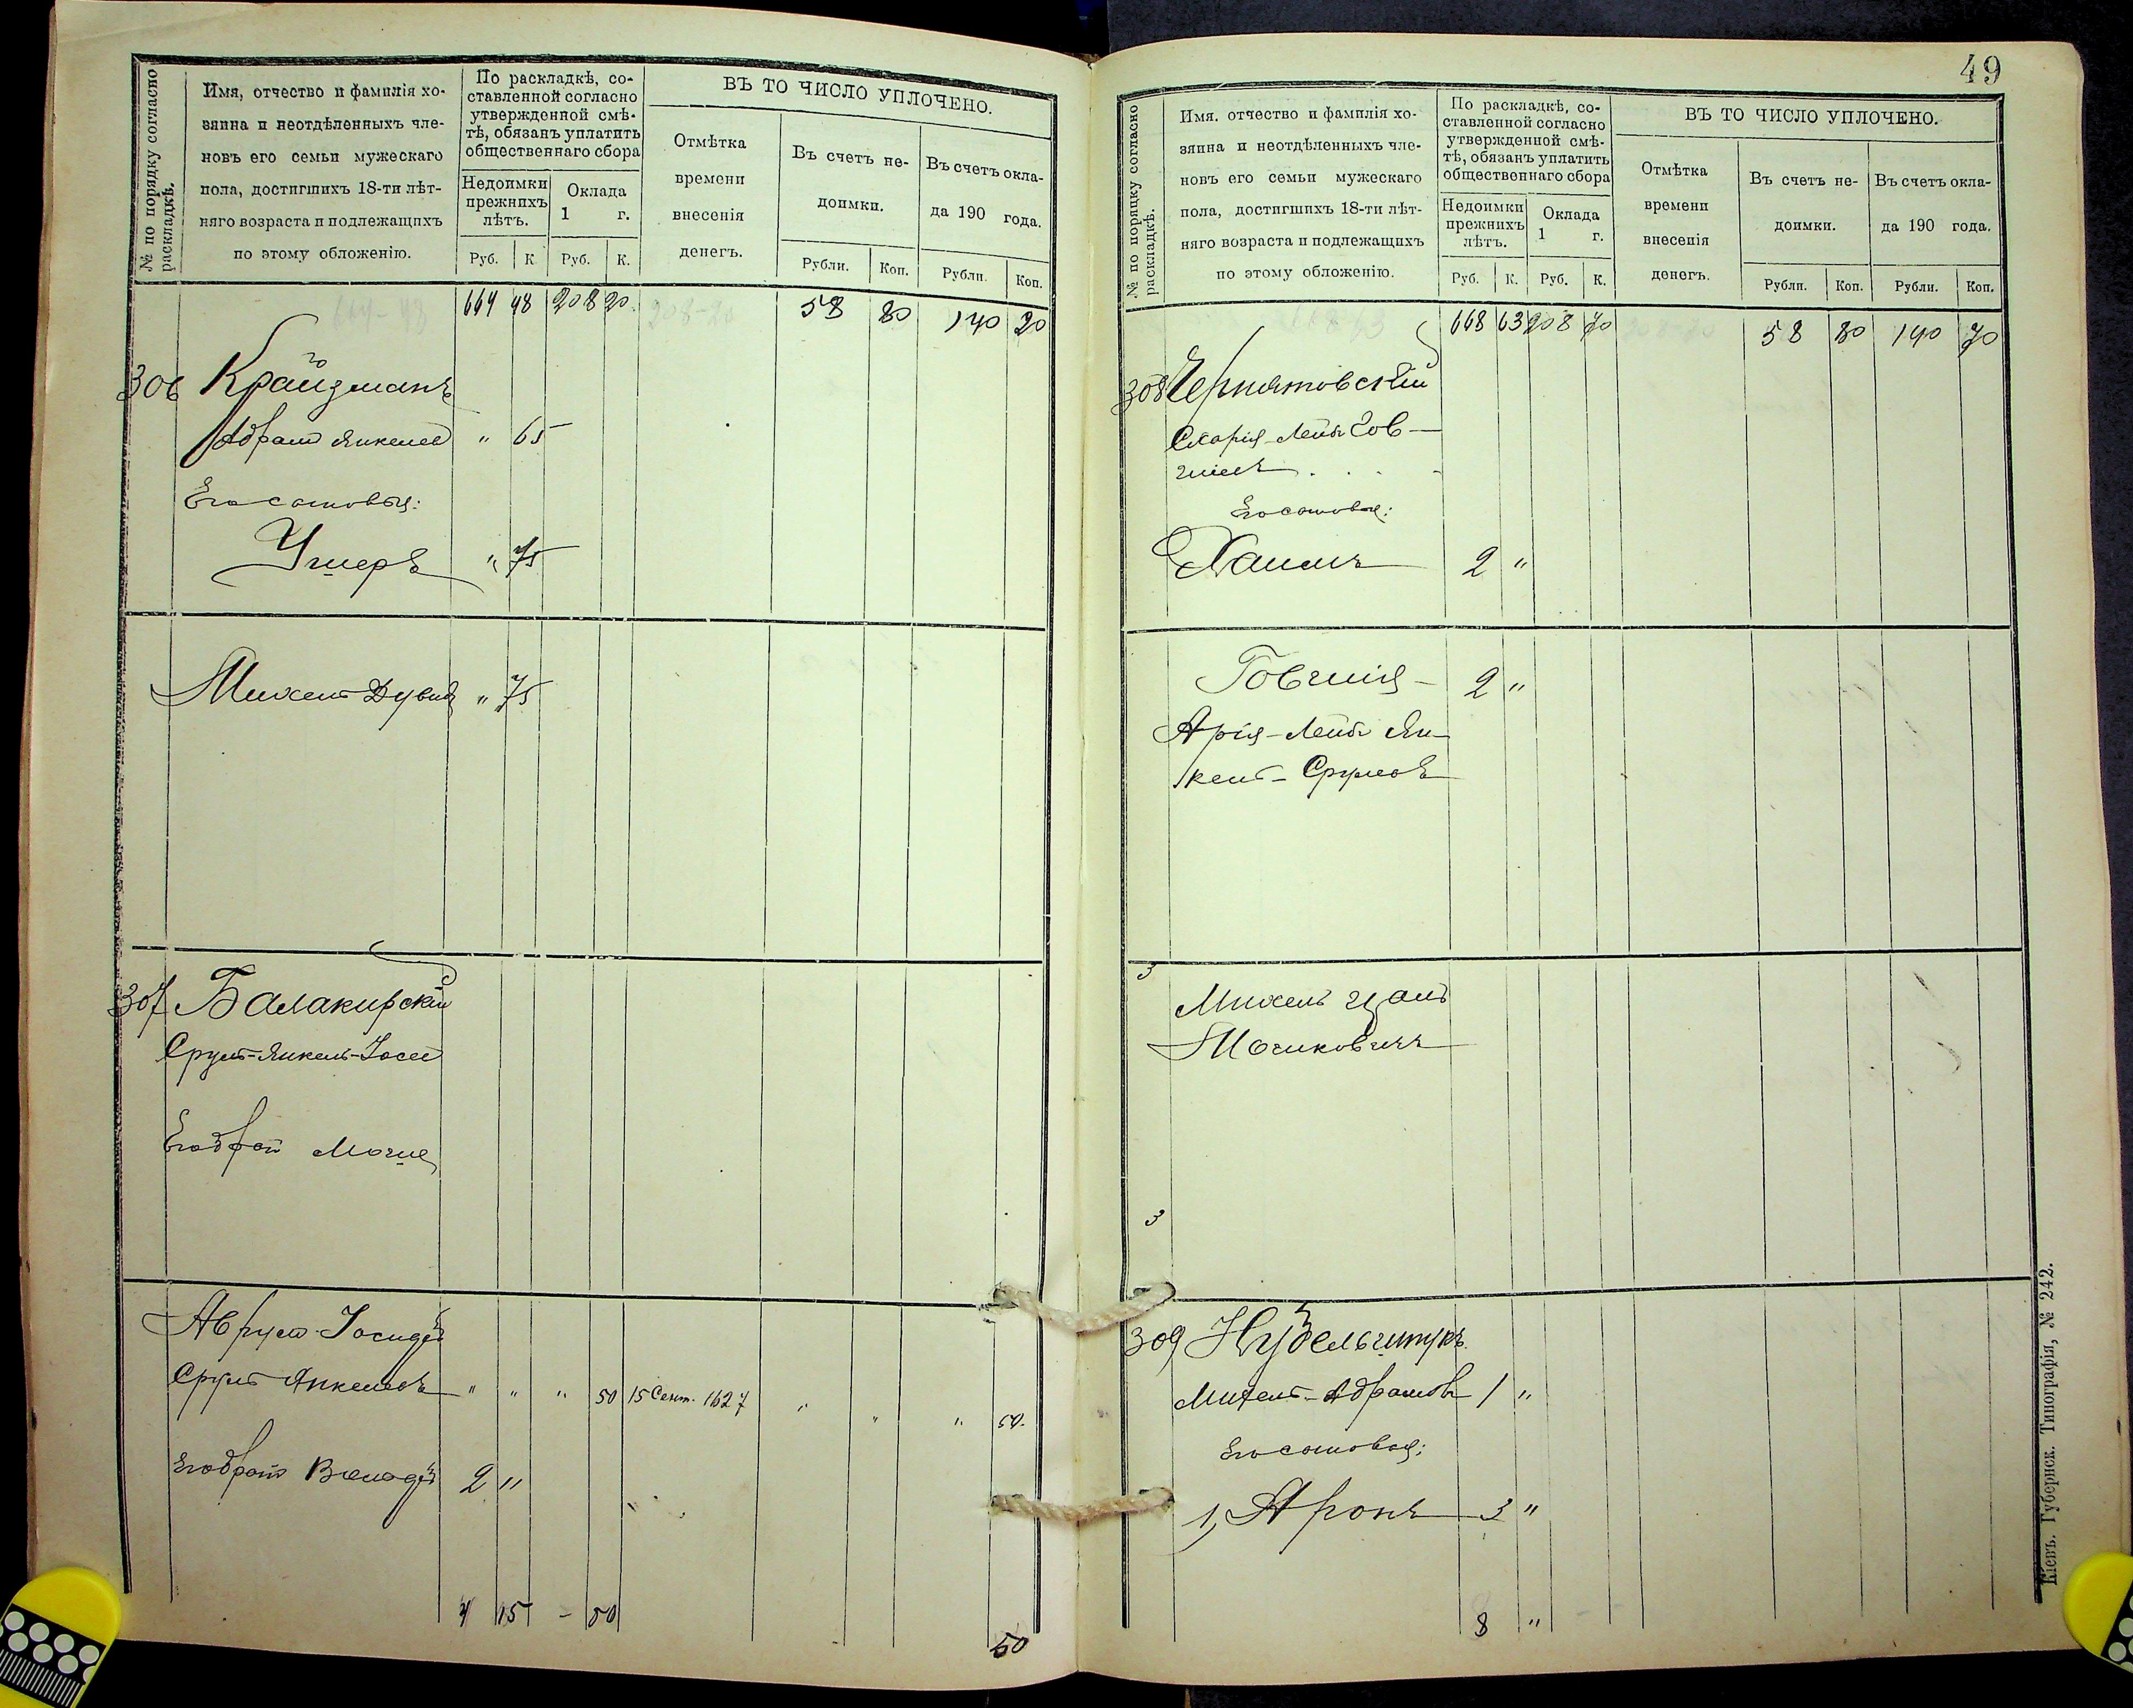 № по порядку согласно раскладкѣ.
Имя, отчество и фамилія хо-
зяина и неотдѣленныхъ чле-
новъ его семьи мужескаго
пола, достигшихъ 18-ти лѣт-
няго возраста и подлежащихъ
по этому обложенію.
По раскладкѣ, со-
ставленной согласно
утвержденной смѣ-
тѣ, обязанъ уплатить
общественнаго сбора
Недоимки
прежнихъ
лѣтъ.
Оклада
1 г.
Руб. К. Руб. К.
ВЪ ТО ЧИСЛО УПЛОЧЕНО.
Отмѣтка
времени
внесенія
денегъ.
Въ счетъ не-
доимки.
Въ счетъ окла-
да 190 года.
Рубли. Коп. Рубли. Коп.
664 48 208 20 58 80 140 20
306 Крайзманъ
Абрам Янкелев " 65
Его сыновья:
Ушеръ " 75
Михель Дувид " 75
307 Балакирскій
Сруль-Янкель-Іосев
Его брат Мошка
Аврум-Іосиф
Сруль Янкелевъ " " " 50 15 Сент. 1627 " " " 50.
Его брат 2 "
4 15 - 50
50
49
№ по поряцку согласно раскладкѣ.
Имя. отчество и фамилія хо-
зяина и неотдѣленныхъ чле-
новъ его семьи мужескаго
пола, достигшихъ 18-ти лѣт-
няго возраста и подлежащихъ
по этому обложенію.
По раскладкѣ, со-
ставленной согласно
утвержденной смѣ-
тѣ, обязанъ уплатить
общественнаго сбора
Недоимки
прежнихъ
лѣтъ.
Оклада
1 г.
Руб. К. Руб. К.
ВЪ ТО ЧИСЛО УПЛОЧЕНО.
Отмѣтка
времени
внесенія
денегъ.
Въ счетъ не-
доимки.
Въ счетъ окла-
да 190 года.
Рубли. Коп. Рубли. Коп.
668 63 208 70 58 80 140 70
308 Чернятовскій
Лейб Гов-
шіев
Его сыновья:
Хаимъ 2 "
Говшія - 2 "
Арія-Лейб Ян-
кель-Срулев
3
Михель
Мошковичъ
3
309 Нудельштукъ
Михель-Абрамов 1 "
Его сыновья:
1, Аронъ 3 "
8 "
Кіевъ. Губернск. Типографія, № 242.